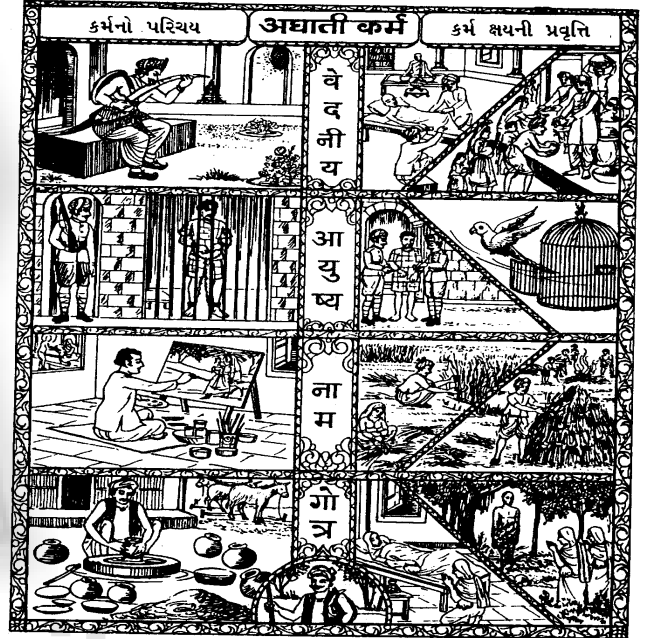 કર્મનો પરિચય
अघाती कर्म
કર્મ ક્ષયની પ્રવૃત્તિ
वेदनीय
आयुष्य
नाम
गोत्र